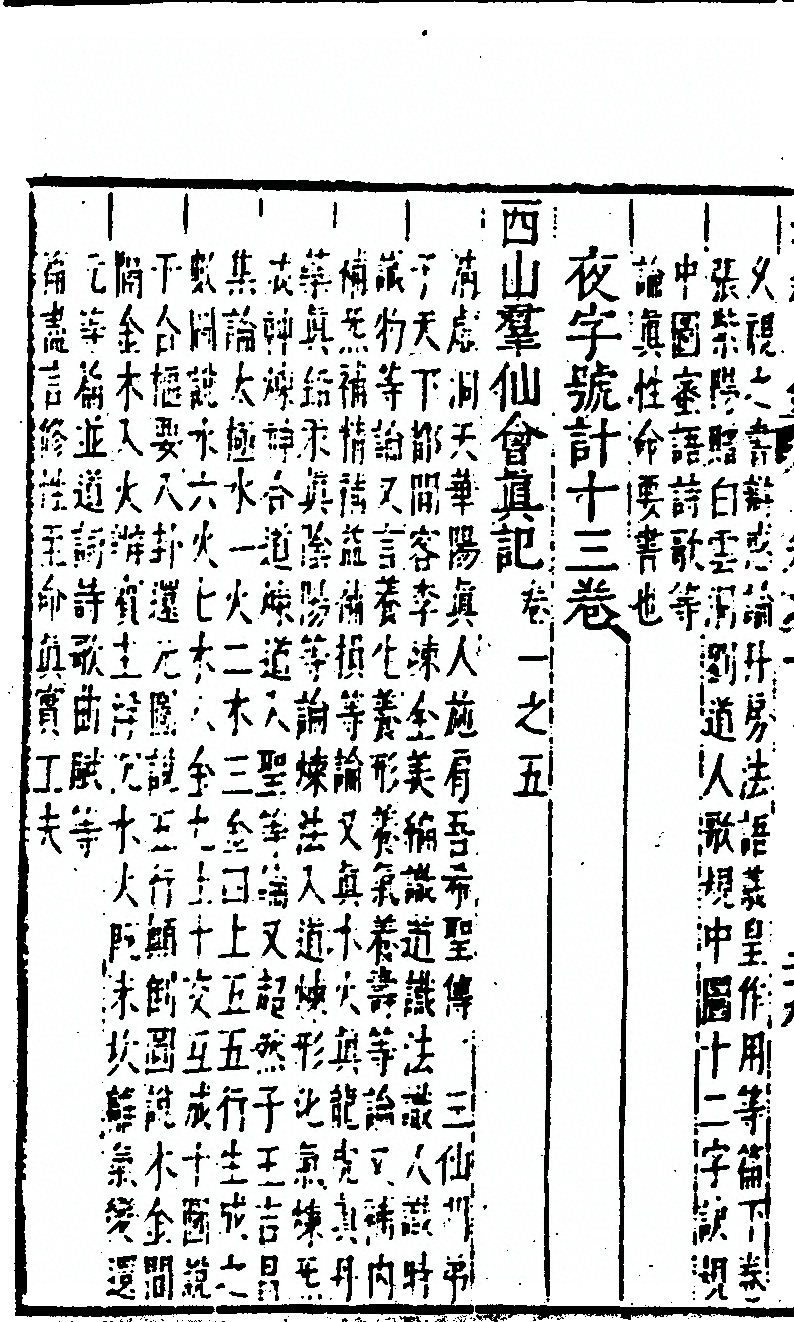 火視之書辯惑論升房法語義皇作用等篇下卷
張紫陽贈白雲洞劉道人歌規中圖十二字訣規
中圖蜜語詩歌等
論眞性命要書也
夜字號計十三卷
西山羣仙會眞記 卷一之五
清虛洞天華陽眞人施肩吾希聖傳 三仙門弟
子天下都閒客李竦全美編識道識法識人識時
識物等論又言養生養形養氣養壽等論又補內
補炁補精補益補損等論又眞水火眞龍虎眞丹
藥眞鉛汞眞陰陽等論煉法入道煉形化氣煉炁
成神煉神合道煉道入聖等論又超然子王吉昌
集論太極水一火二木三金四土五五行生成之
數圖說水六火七木八金九土十交互成十圖說
下合樞要八卦還元圖說五行顛倒圖說木金間
隔金木入火辨賓主浮沉水火旣未坎離氣變還
元等論並道詞詩歌曲賦等
篇盡言修性至命眞實工夫